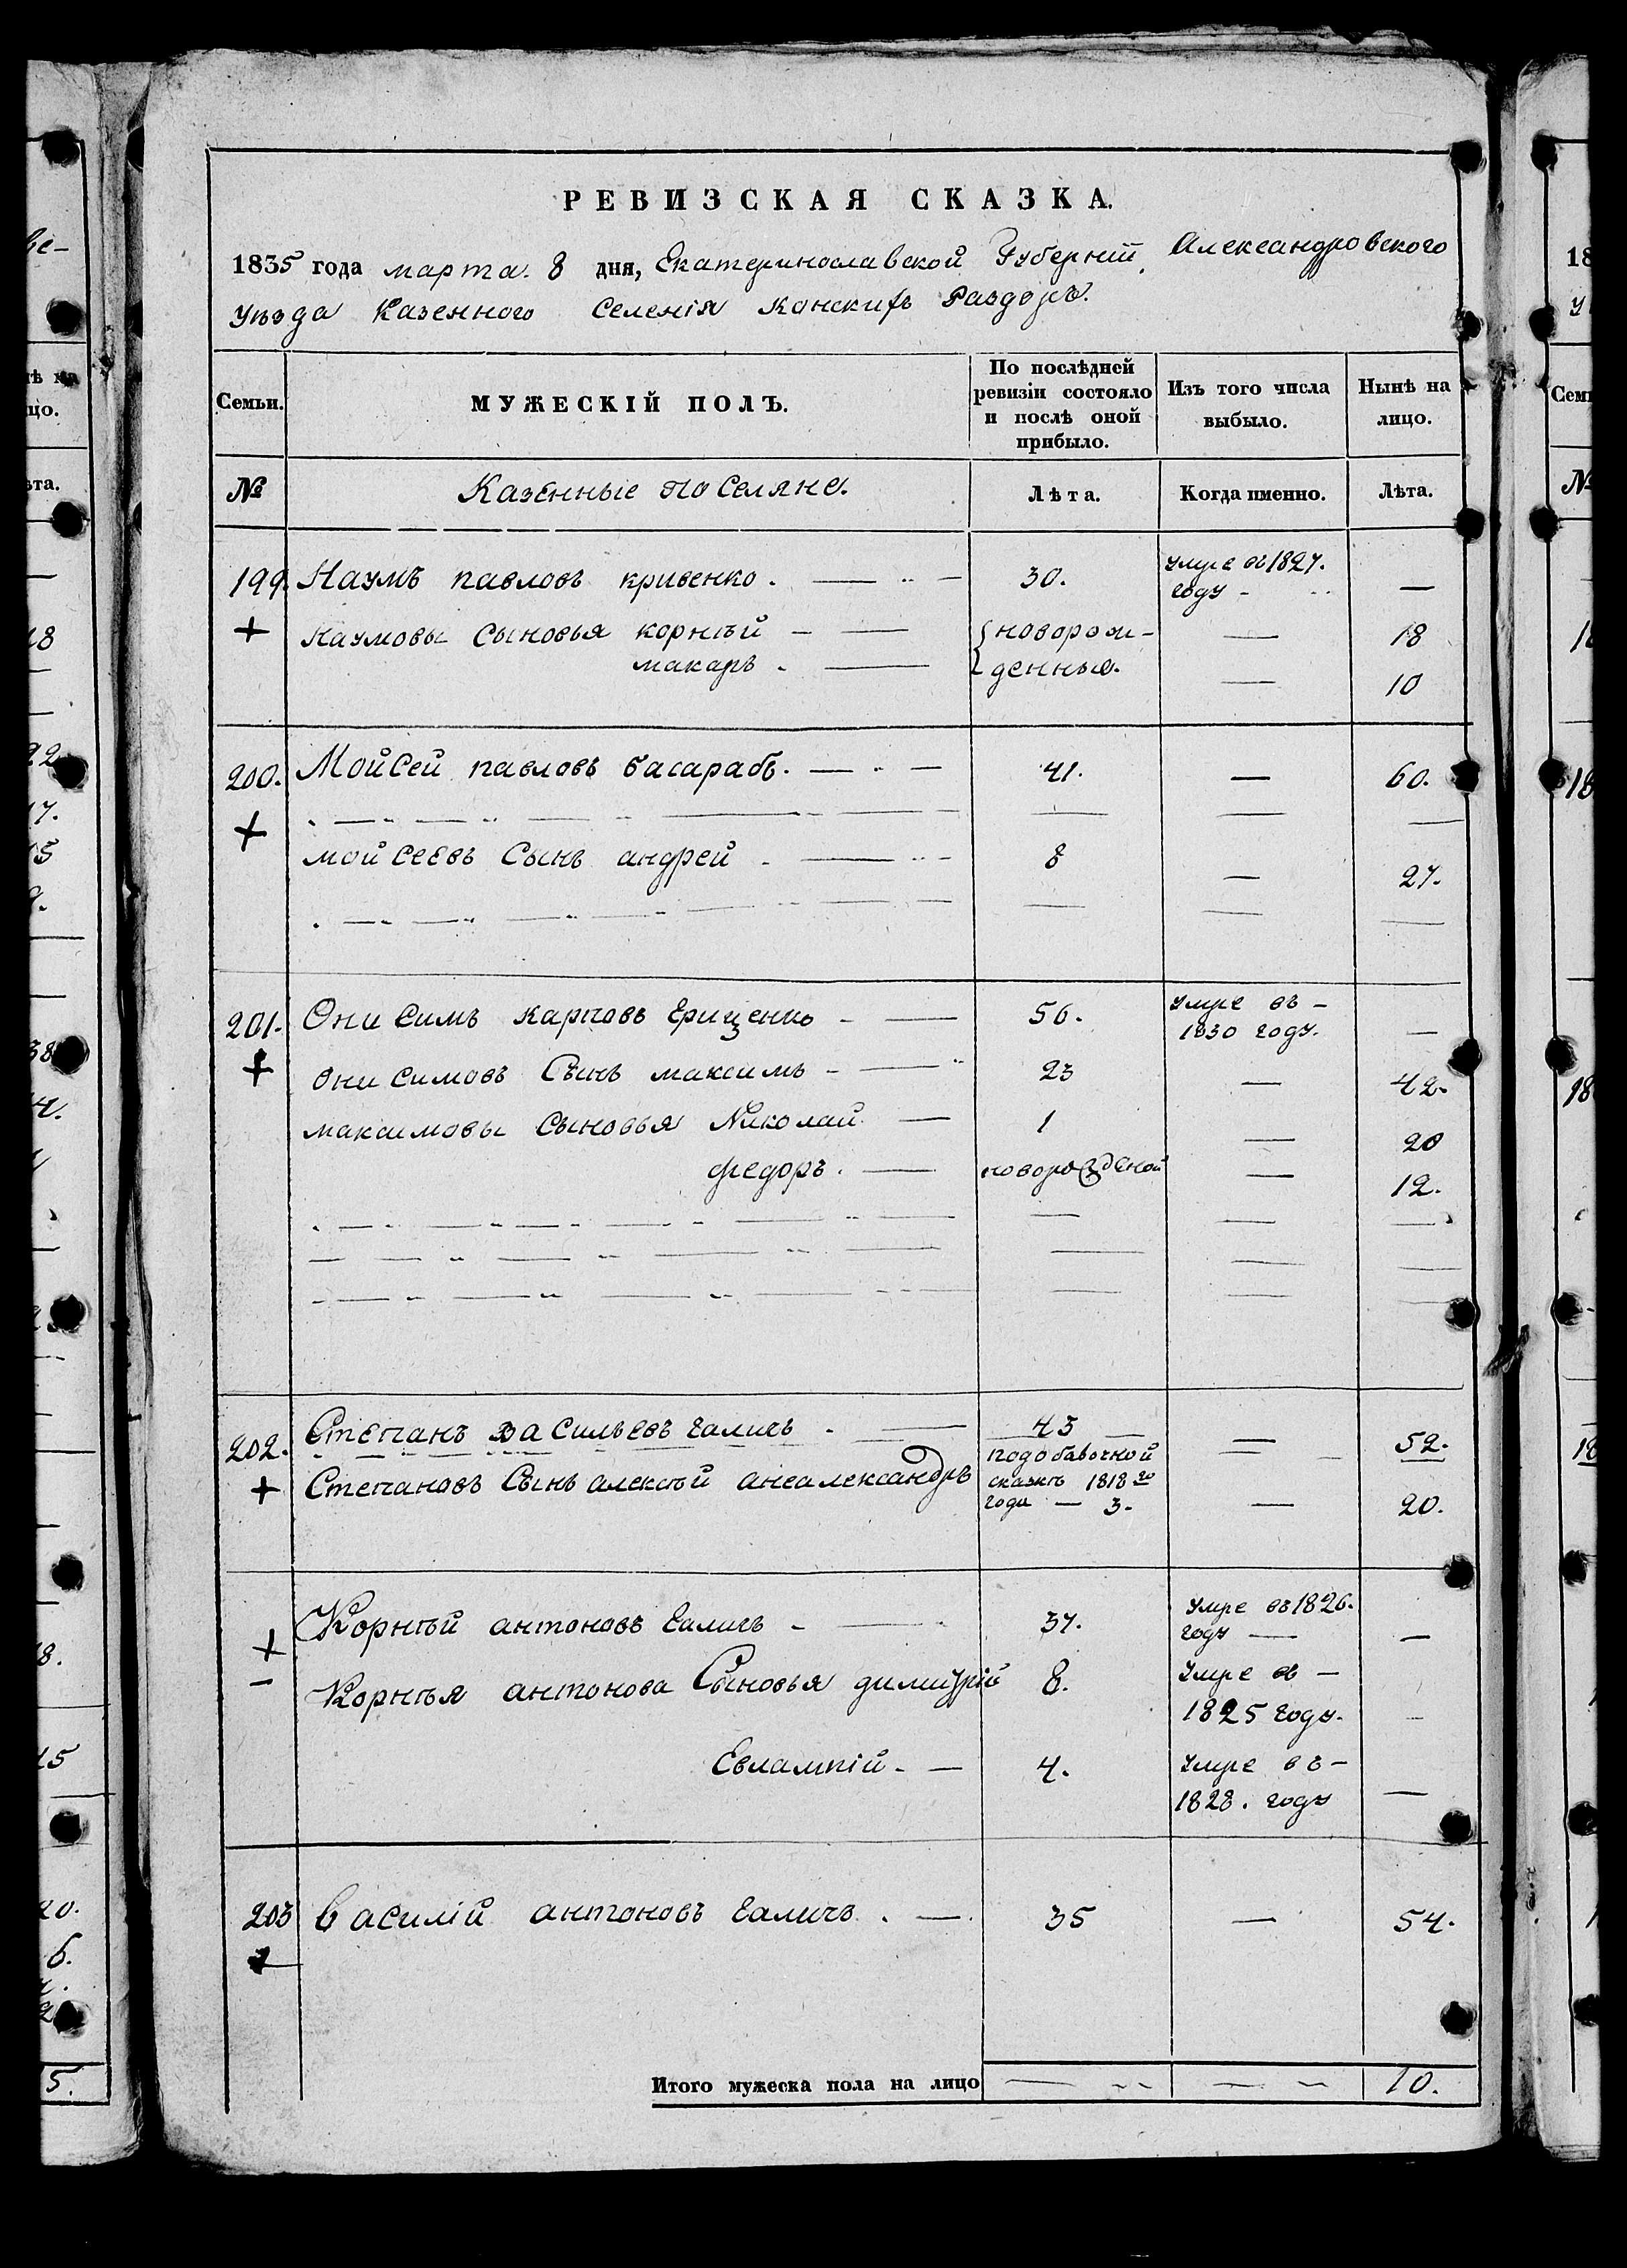 РЕВИЗСКАЯ СКАЗКА.
1835 года марта. 8 дня, Екатеринославской Губерніи, Александровского
уезда Казенного Селенія Конскихъ Раздоръ.
Семьи. МУЖЕСКІЙ ПОЛЪ. По послѣдней ревизіи состояло и послѣ оной прибыло. Изъ того числа выбыло. Нынѣ на лицо.
№ Казенные поселяне. Лѣта. Когда именно. Лѣта.
199. Наумъ павловъ кривенко. — 30. умре въ 1827. году — —
+ наумовы Сыновья корнѣй — — {новорож- — 18
макаръ. — денные. — 10
200. Мойсей павловъ басарабъ. — 41. — 60.
+ мойсеевъ Сынъ андрей — 8 — 27.
201. Онисимъ карповъ Ерищенко — — 56. умре въ — 1830 году. —
+ онисимовъ Сынъ максимъ — — 23 — 42.
максимовы Сыновья Николай — 1 — 20
федоръ. — новорожденой — 12.
202. Степанъ васильевъ галичъ. — 43 — — 52.
+ Степановъ Сынъ алексѣй анеалександръ подобавочной сказкѣ 1818го года — 3. — 20.
+ Корнѣй антоновъ галичъ — — 37. умре въ 1826. году — —
– Корнѣя антонова Сыновья димитрій 8. умре въ — 1825 году. —
Евлампій. — 4. умре въ — 1828. году —
203 Василій антоновъ галичъ. — 35 — 54.
Итого мужеска пола на лицо — — 10.